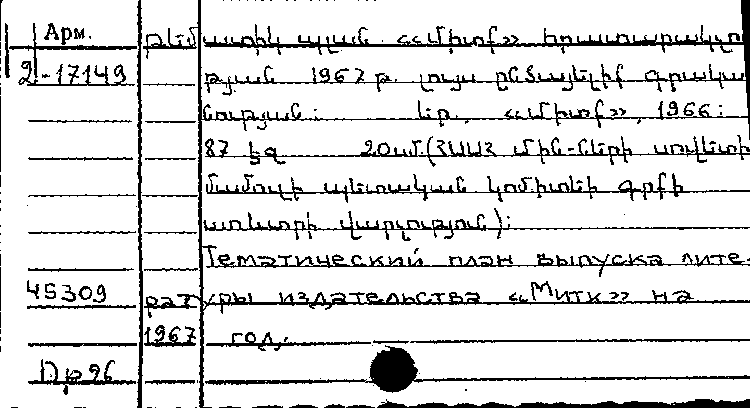 Арм.
թեմատիկ պլան «Միտք» հրատարակչու
2-17149
թյան 1967 թ. լույս ընծայելիք գրակա
նության: Եր., «Միտք», 1966:
87 էջ 20սմ. (ՀՍՍՀ Մին-ների սովետի
մամուլի պետական կոմիտեի գրքի
առևտրի վարչություն):
Тематический план выпуска лите-
45309
ратуры издательства «Митк» на
1967 год.